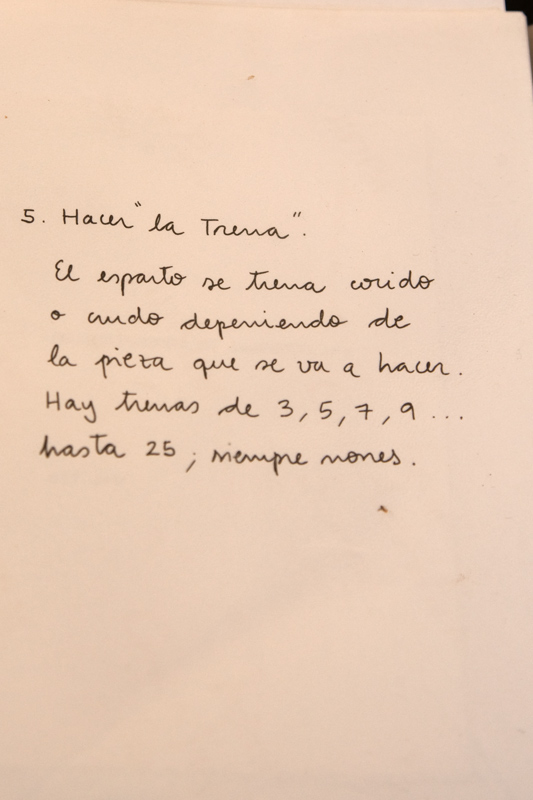 5. Hacer "la Trena".
El esparto se trena cocido
o crudo depeniendo de
la pieza que se va a hacer.
Hay trenas de 3, 5, 7, 9 ...
hasta 25; siempre nones.